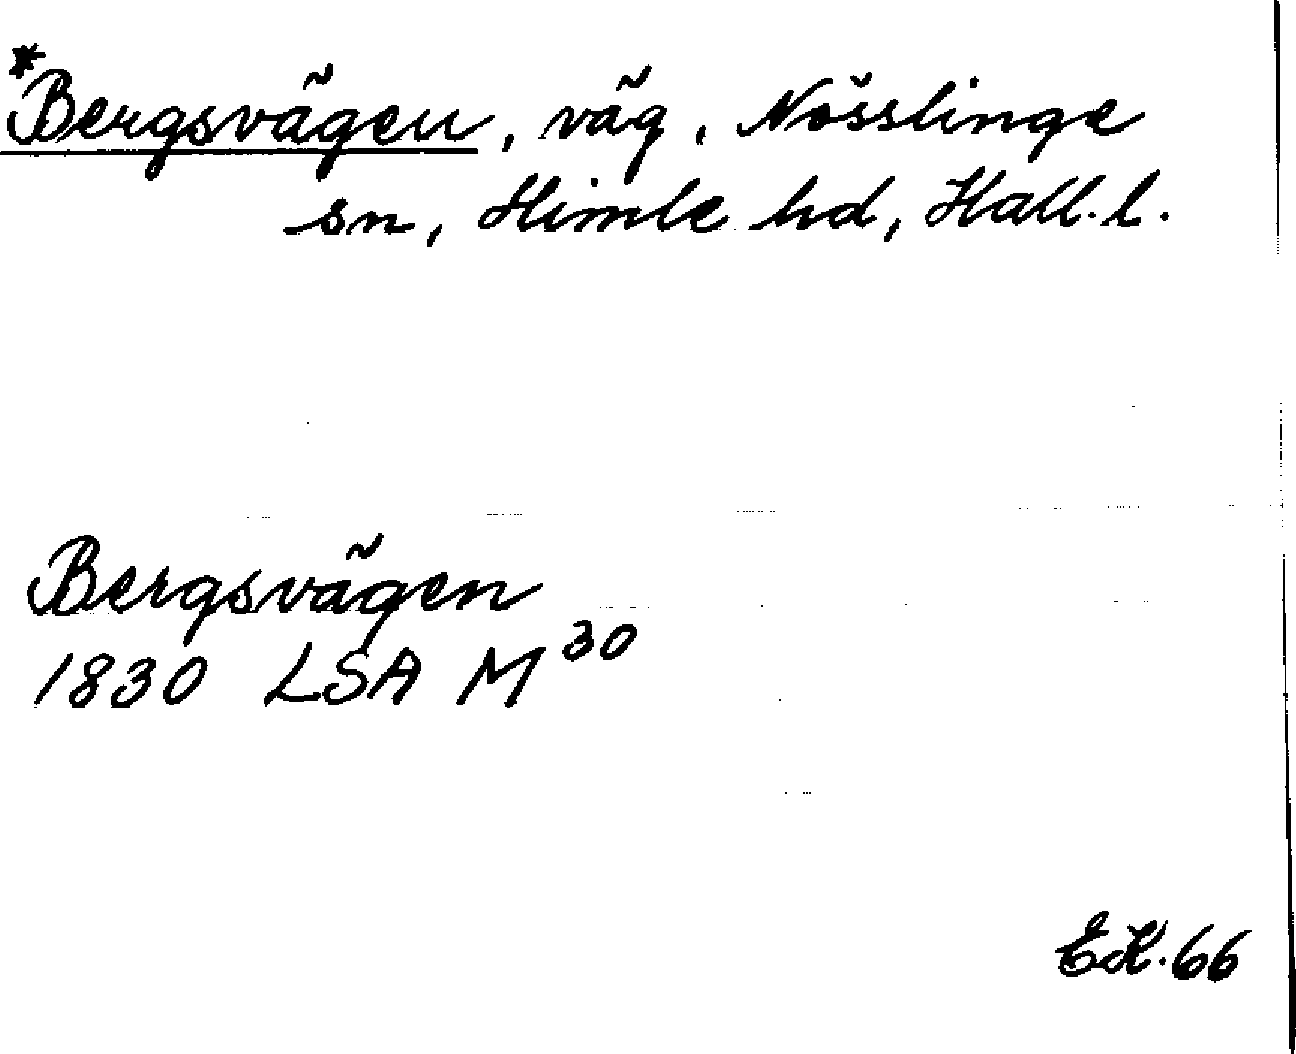 *Bergsvägen, väg, Nösslinge
sn, Himle hd, Hall. l.
Bergsvägen
1830 LSA M 30
EK. 66